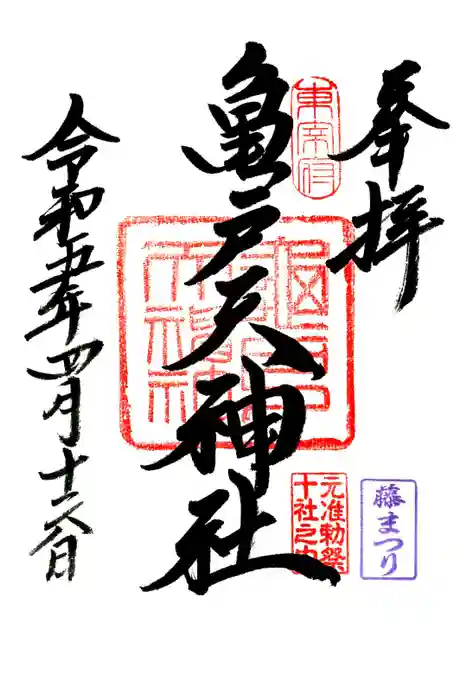 奉拝
東宰府
亀戸天神社
元准勅祭
十社之内
藤まつり
令和五年四月十六日